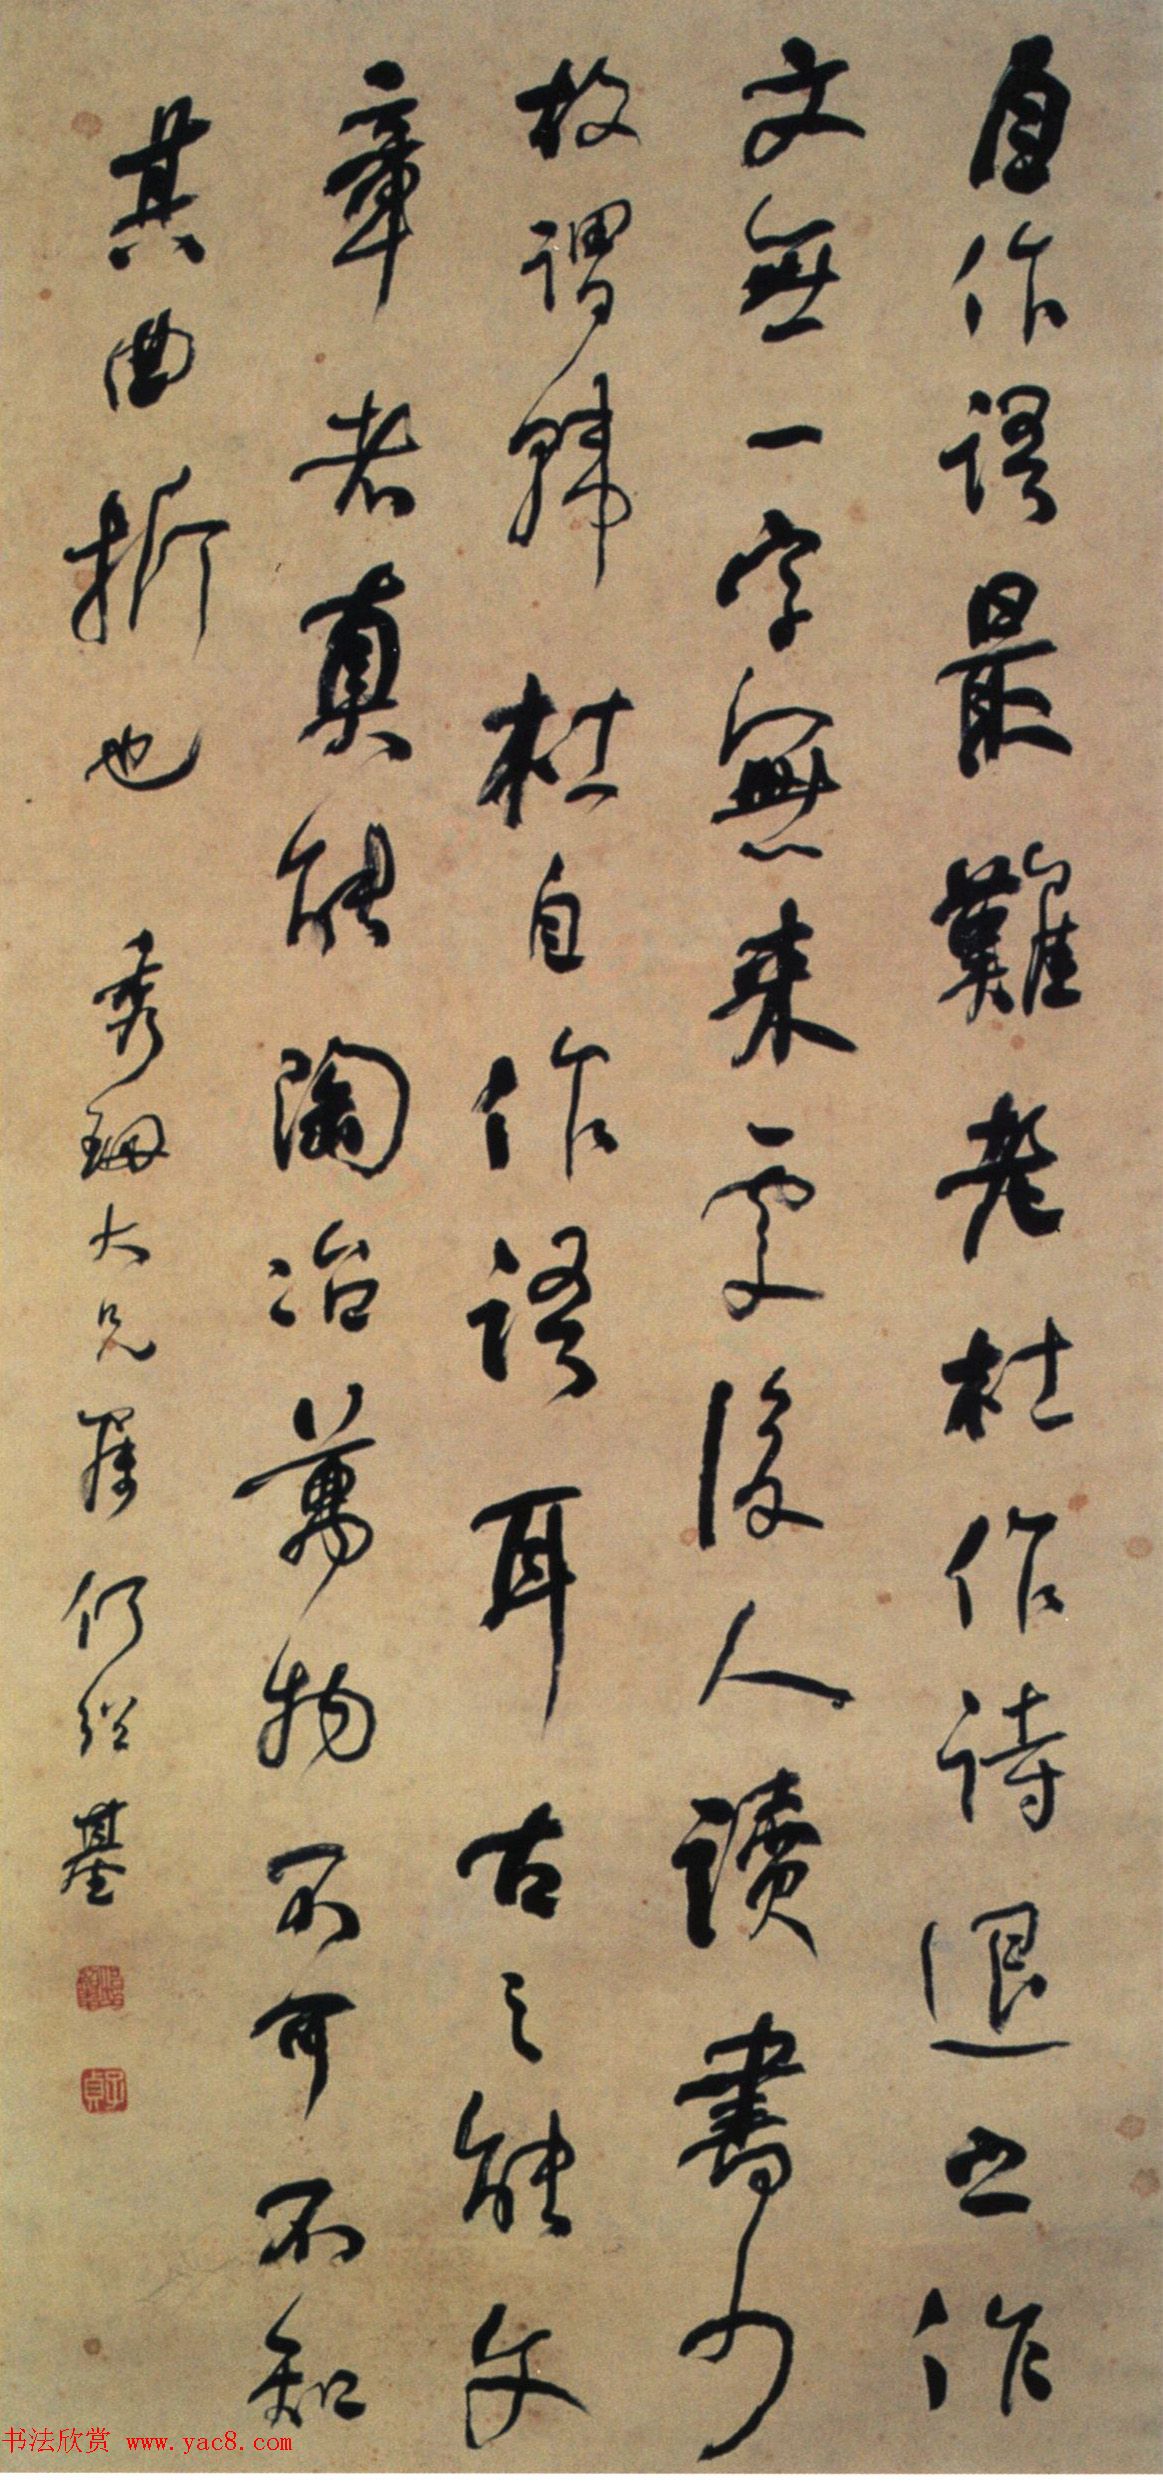 自作語最難老杜作詩退之作
文無一字無來處後人讀書少
故謂韓杜自作語耳古之能文
章者真能陶冶萬物不可不知
其曲折也
秀珊大兄屬 何紹基
子貞
书法欣赏 www.yac8.com